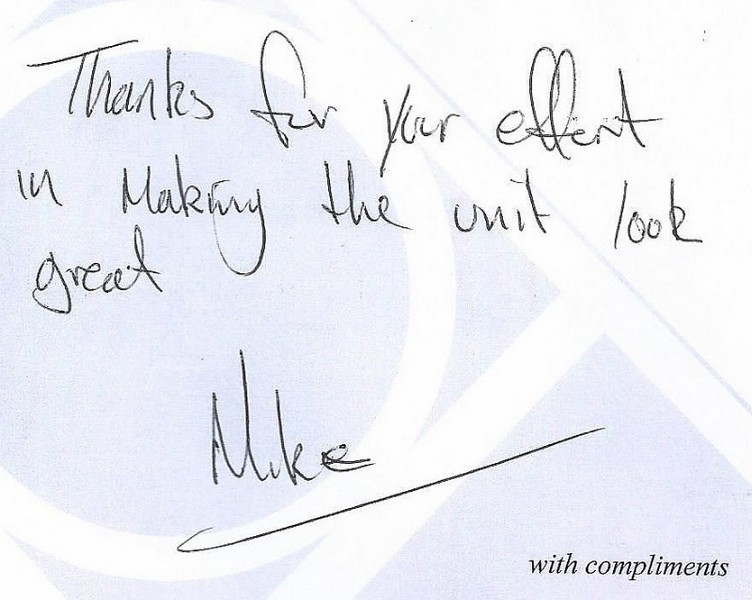 Thanks for your effort
in Making the unit look
great
Mike
with compliments